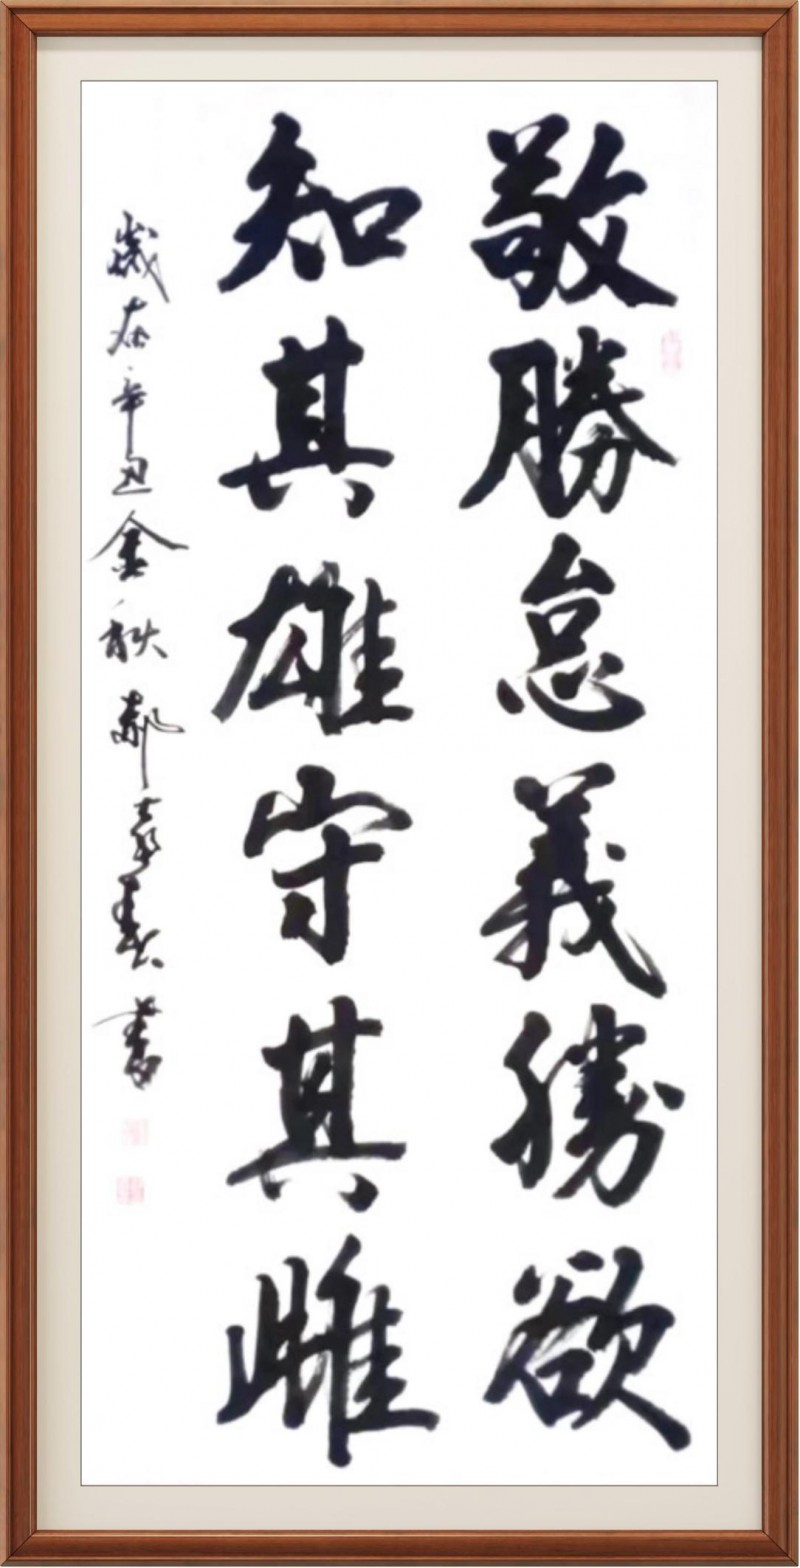 敬勝怠義勝欲
知其雄守其雌
歲在辛丑金秋鄰家義書